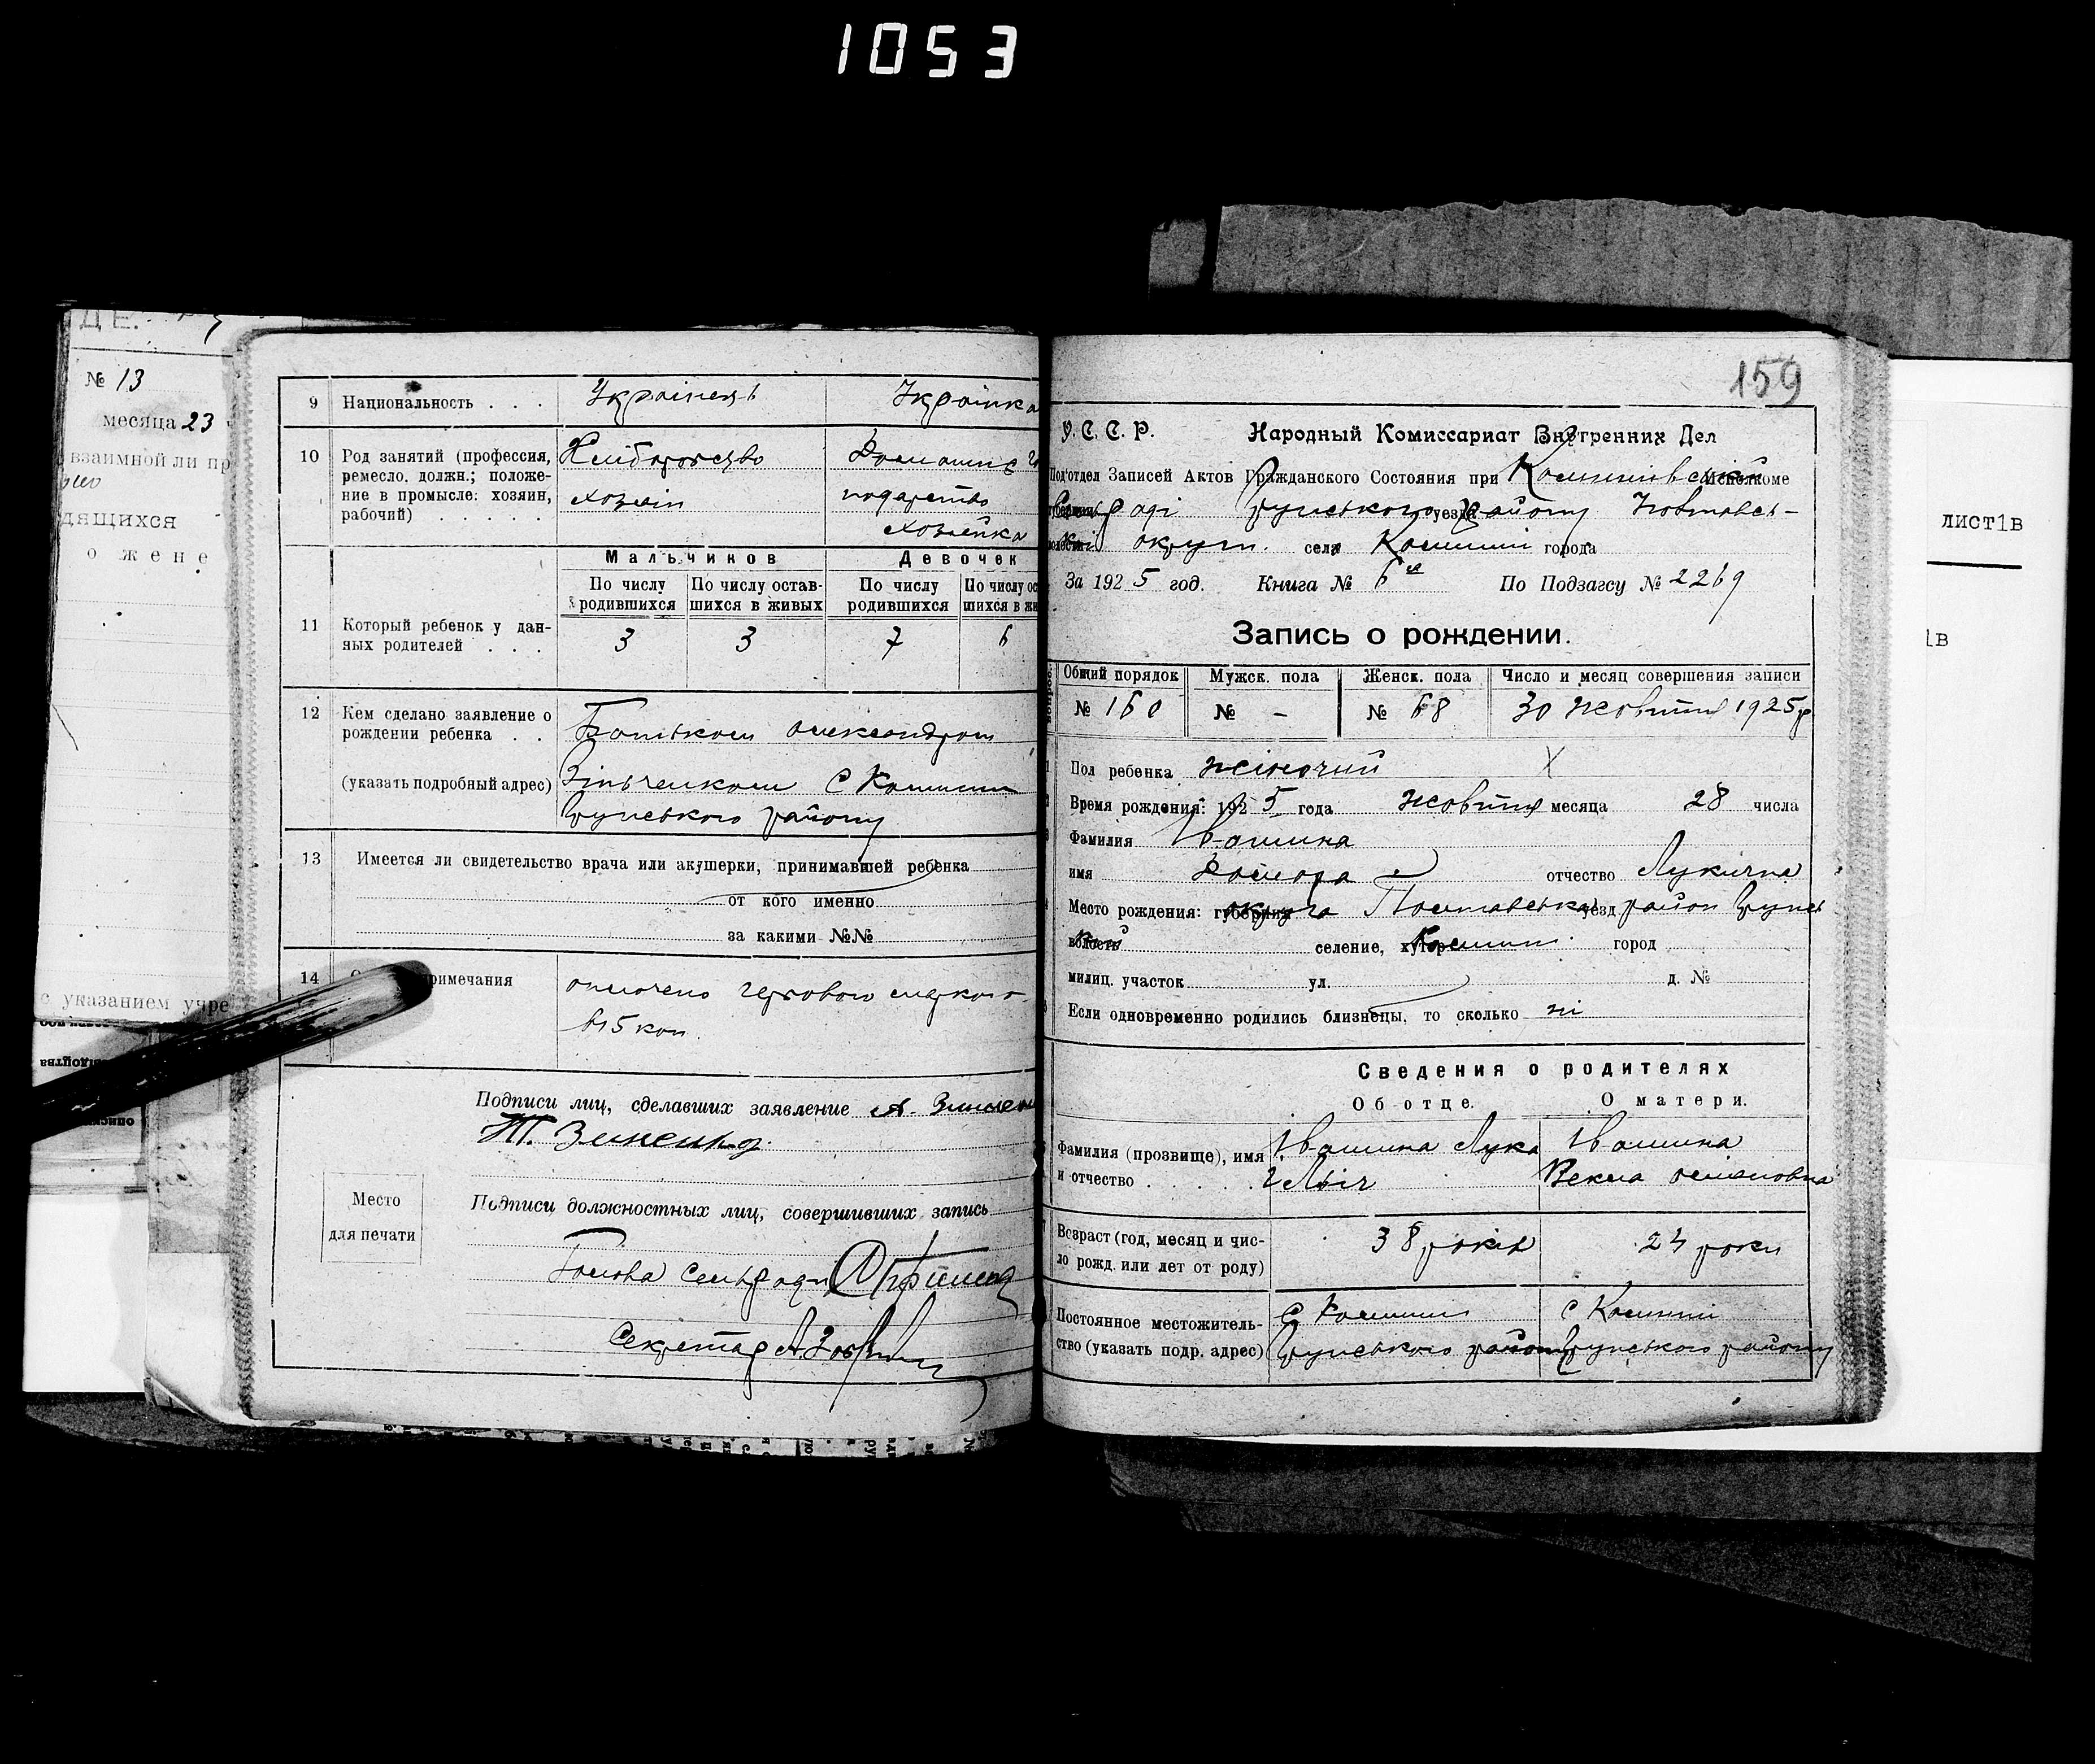 1053
ДЕ.
№ 13
месяца 23
взаимной ли пр
дящихся
о жене
с указанием учре
9 Национальность . . . Українець Українка
10 Род занятий (профессия, Хліборобство Домашнє г
ремесло, должн.; положе-
ние в промысле: хозяин, хозяїн подарство
рабочий) . . . . . хозяйка
Мальчиков Девочек
По числу По числу остав- По числу По числу ос
родившихся шихся в живых родившихся шихся в жи
11 Который ребенок у дан- 3 3 7 6
ных родителей . . .
12 Кем сделано заявление о Батьком Олександром
рождении ребенка . .
(указать подробный адрес) Зінченком С Комиші
Грунського району
13 Имеется ли свидетельство врача или акушерки, принимавшей ребенка
от кого именно
за какими №№
14 римечания оплочено
15 коп.
Подписи лиц, сделавших заявление А.
Место
для печати
Подписи должностных лиц, совершивших запись
Голова сельради
Секретар
159
У. С. С. Р. Народный Комиссариат Внутренних Дел
Под'отдел Записей Актов Гражданского Состояния при Комишівській
раді Грунського уезда району Полтавсь-
кої округи. села Комиші города
За 1925 год. Книга № 6я По Подзагсу № 2269
Запись о рождении.
Общий порядок Мужск. пола Женск. пола Число и месяц совершения записи
№ 160 № - № 68 30 жовтня 1925 р
Пол ребенка жіночий
Время рождения: 1925 года жовтня месяца 28 числа
Фамилия Івашина
имя отчество Лукічна
Место рождения: губерния округа Полтавська уезд район Грунсь
волость кий селение, хутор Комиші город
милиц. участок ул. д. №
Если одновременно родились близнецы, то сколько ні
Сведения о родителях
Об отце. О матери.
Фамилия (прозвище), имя Івашина Лука Івашина
и отчество . . . . Ілліч Векла
Возраст (год, месяц и чис- 38 років 24 роки
ло рожд. или лет от роду)
Постоянное местожитель- С Комиші С Комиші
ство (указать подр. адрес) Грунського району Грунського району
лист1в
1в